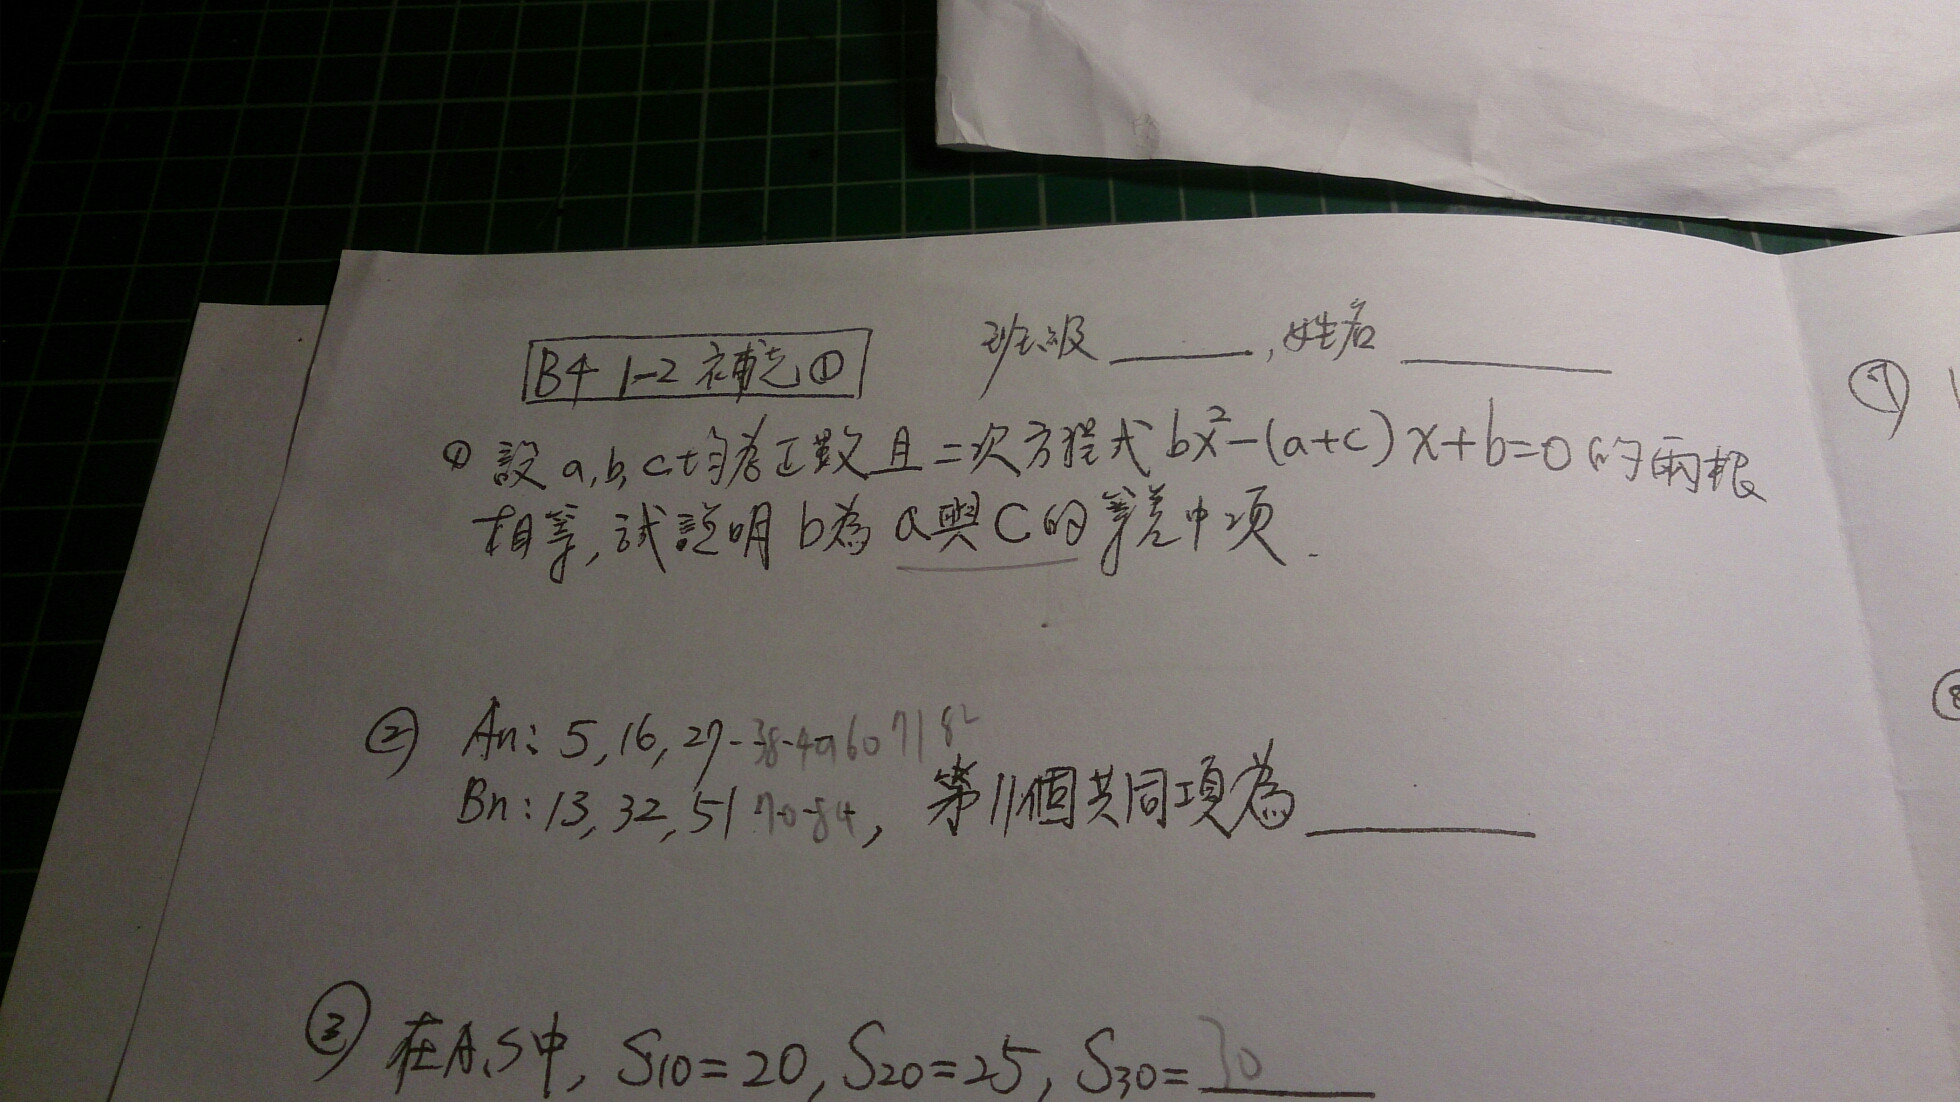 B4 1-2 補充① 班級____,姓名____
① 設a,b,c均為正數且二次方程式bx²-(a+c)x+b=0的兩根
相等,試說明b為a與c的等差中項.
② An: 5,16,27-38-49 60 71 82
Bn: 13,32,51 70-84, 第11個共同項為____
③ 在A.S中, S10=20, S20=25, S30=30
⑦
⑧